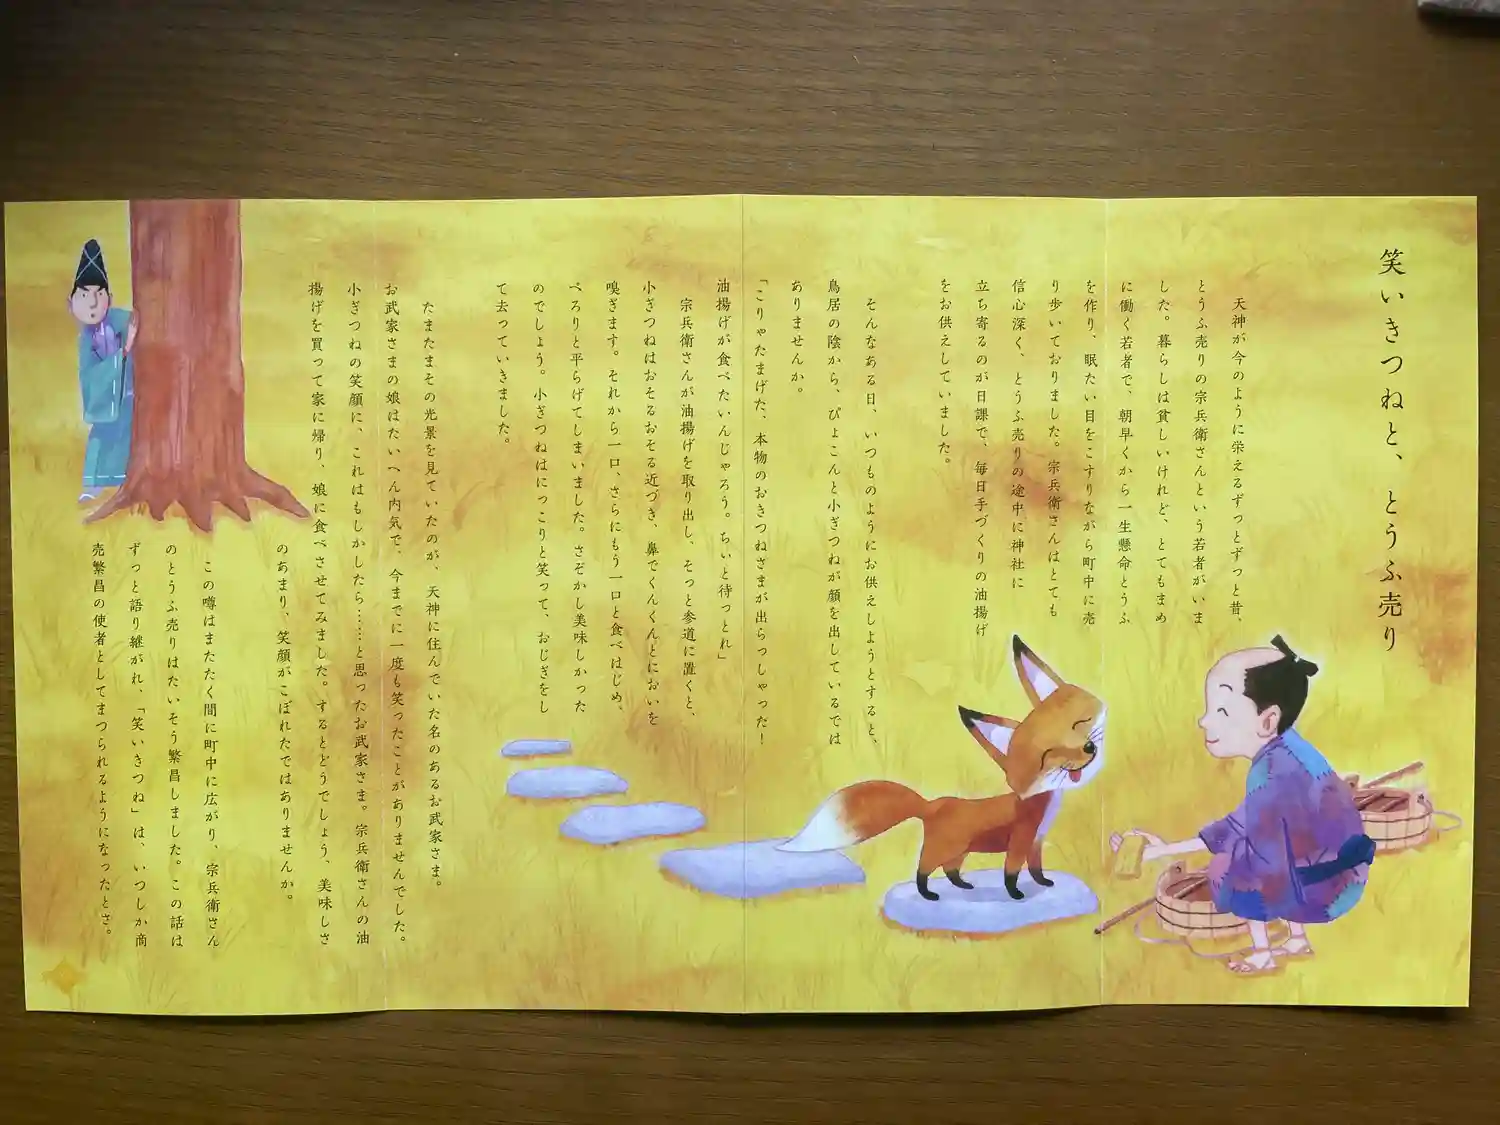 笑いきつねと、とうふ売り
天神が今のように栄えるずっとずっと昔、
とうふ売りの宗兵衛さんという若者がいま
した。暮らしは貧しいけれど、とてもまめ
に働く若者で、朝早くから一生懸命とうふ
を作り、眠たい目をこすりながら町中に売
り歩いておりました。宗兵衛さんはとても
信心深く、とうふ売りの途中に神社に
立ち寄るのが日課で、毎日手づくりの油揚げ
をお供えしていました。
そんなある日、いつものようにお供えしようとすると、
鳥居の陰から、ぴょこんと小ぎつねが顔を出しているでは
ありませんか。
「こりゃたまげた、本物のおきつねさまが出らっしゃった!
油揚げが食べたいんじゃろう。ちいと待っとれ」
宗兵衛さんが油揚げを取り出し、そっと参道に置くと、
小ぎつねはおそるおそる近づき、鼻でくんくんとにおいを
嗅ぎます。それから一口、さらにもう一口と食べはじめ、
ぺろりと平らげてしまいました。さぞかし美味しかった
のでしょう。小ぎつねはにっこりと笑って、おじぎをし
て去っていきました。
たまたまその光景を見ていたのが、天神に住んでいた名のあるお武家さま。
お武家さまの娘はたいへん内気で、今までに一度も笑ったことがありませんでした。
小ぎつねの笑顔に、これはもしかしたら……と思ったお武家さま。宗兵衛さんの油
揚げを買って家に帰り、娘に食べさせてみました。するとどうでしょう、美味しさ
のあまり、笑顔がこぼれたではありませんか。
この噂はまたたく間に町中に広がり、宗兵衛さん
のとうふ売りはたいそう繁昌しました。この話は
ずっと語り継がれ、「笑いきつね」は、いつしか商
売繁昌の使者としてまつられるようになったとさ。